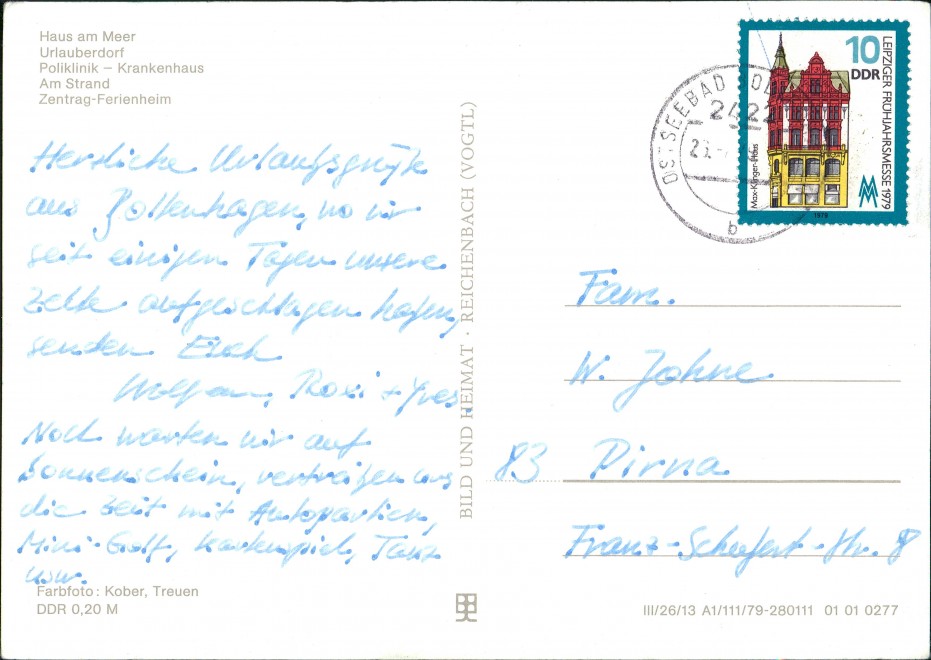 Haus am Meer
Urlauberdorf
Poliklinik – Krankenhaus
Am Strand
Zentrag-Ferienheim
Herzliche Urlaubsgrüße
aus Boltenhagen, wo wir
seit einigen Tagen unsere
Zelte aufgeschlagen haben,
senden Euch
Wolfram, Roxi + Yves.
Noch warten wir auf
Sonnenschein, vertreiben uns
die Zeit mit Autopartien,
Mini-Golf, Kartenspiel, Tanz
usw.
Farbfoto: Kober, Treuen
DDR 0,20 M
BILD UND HEIMAT · REICHENBACH (VOGTL)
OSTSEEBAD
2422
b
10
DDR
LEIPZIGER FRÜHJAHRSMESSE 1979
Max-Klinger-Haus
1979
Fam.
W. Johne
83 Pirna
Franz-Schubert-Str. 8
III/26/13 A1/111/79-280111 01 01 0277